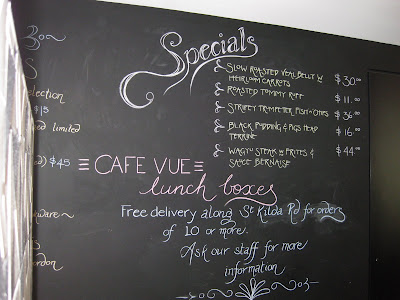 Specials
SLOW ROASTED VEAL BELLY W
HEIRLOOM CARROTS $30.00
ROASTED TOMMY RUFF $11.00
STRIPEY TRUMPETER FISH 'N' CHIPS $36.00
BLACK PUDDING & PIGS HEAD
TERRINE $16.00
WAGYU STEAK W FRITES &
SAUCE BERNAISE $44.00
election
$15
limited
$45
CAFE VUE
lunch boxes
Free delivery along St Kilda Rd for orders
of 10 or more.
Ask our staff for more
information